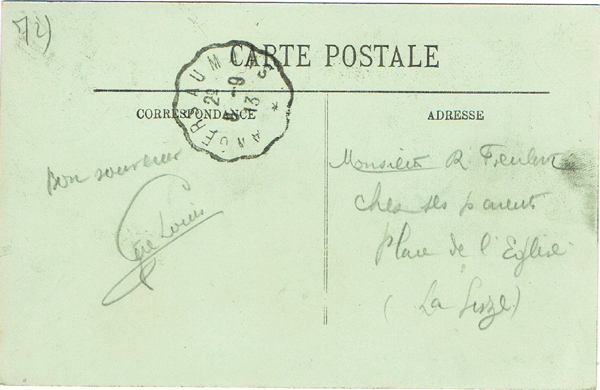 72)
CARTE POSTALE
ANGERS AU MANS
22
8 - 9
13
*
CORRESPONDANCE
ADRESSE
Bon souvenir
Louis
Monsieur R
chez ses parents
Place de l'Eglise
( La Suze )